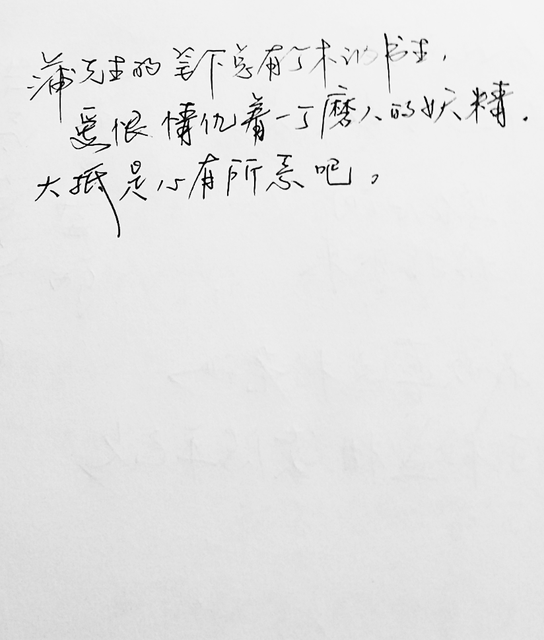 蒲先生的笔下总有个木讷书生，
爱恨情仇着一个磨人的妖精．
大抵是心有所念吧。